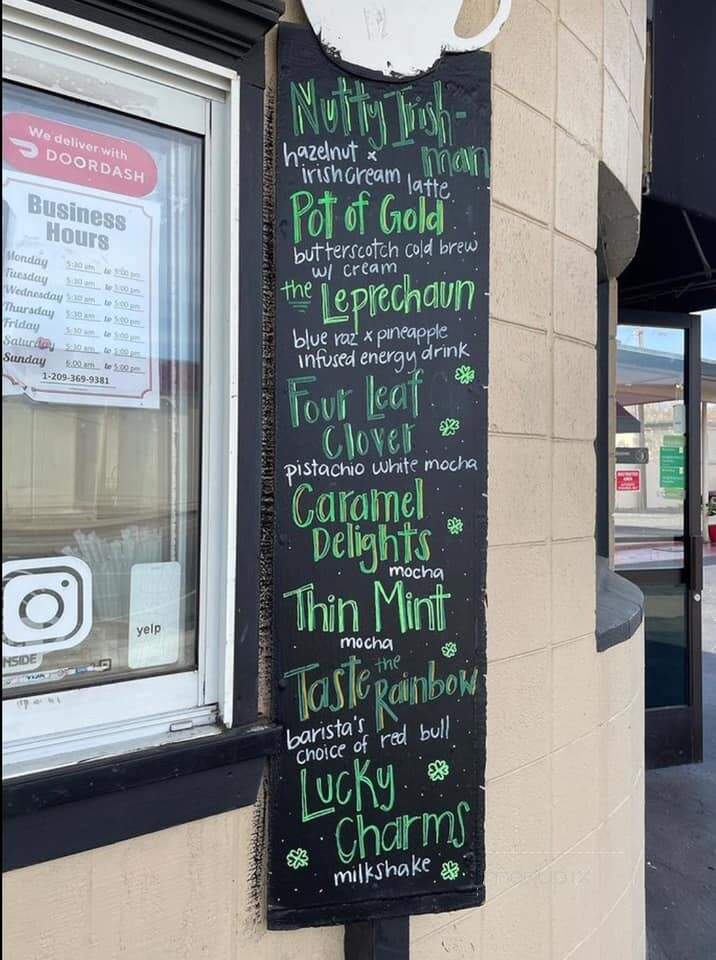 We deliver with
DOORDASH
Business
Hours
Monday 5:30 am to 5:00 pm
Tuesday 5:30 am to 5:00 pm
Wednesday 5:30 am to 5:00 pm
Thursday 5:30 am to 5:00 pm
Friday 5:30 am to 5:00 pm
Saturday 5:30 am to 5:00 pm
Sunday 6:00 am to 5:00 pm
1-209-369-9381
yelp
NSIDE
Nutty Irish-
man
hazelnut x
irish cream latte
Pot of Gold
butterscotch cold brew
w/ cream
the Leprechaun
blue raz x pineapple
infused energy drink
Four Leaf
Clover
pistachio white mocha
Caramel
Delights
mocha
Thin Mint
mocha
Taste the
Rainbow
barista's
choice of red bull
Lucky
Charms
milkshake